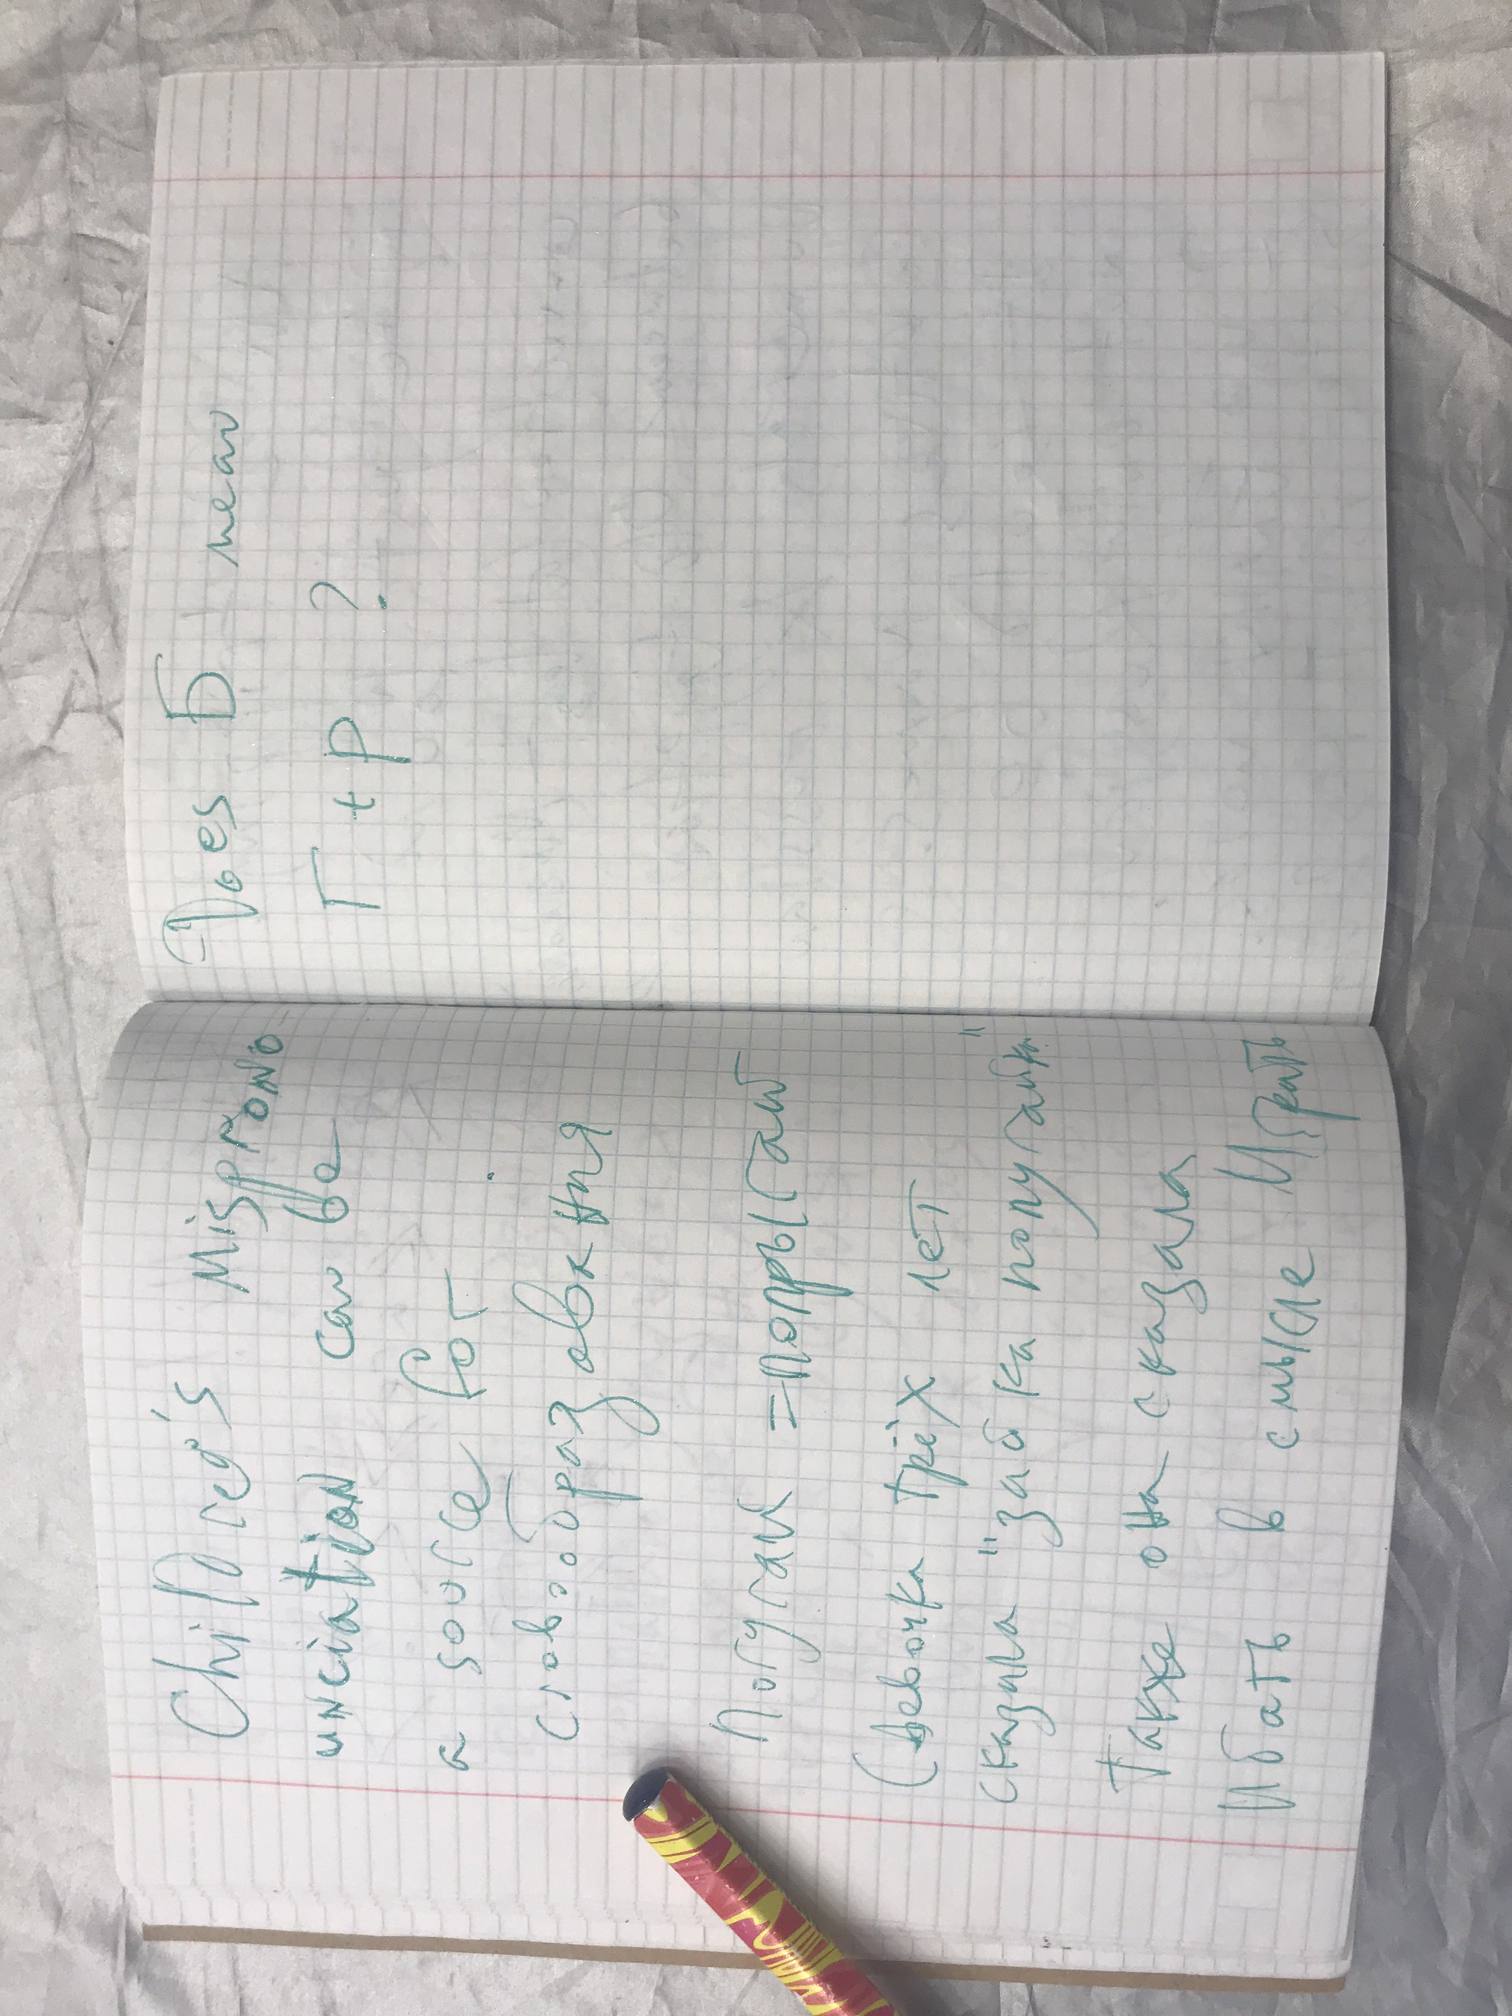 Children's Mispronο-
unciation can be
a source for
словообразования
Попугай = попрыгай
(девочка трёх лет
сказала "зайка попугайка"
Также она сказала
Ибать в смысле Играть
Does Б mean
Г + Р ?